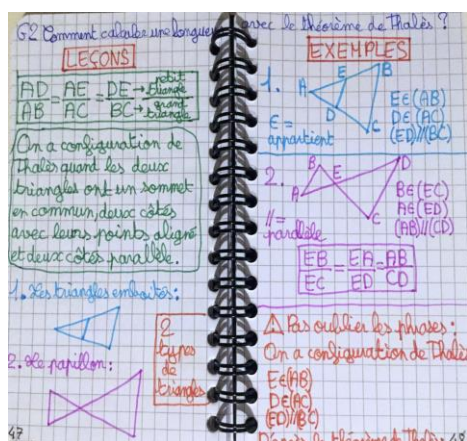 G2 Comment calculer une longueur avec le théorème de Thalès ?
LEÇONS
AD/AB = AE/AC = DE/BC → petit triangle → grand triangle
On a configuration de
Thalès quand les deux
triangles ont un sommet
en commun, deux côtés
avec leurs points aligné
et deux côtés parallèle.
1. Les triangles emboités :
2. Le papillon :
2
types
de
triangles
47
EXEMPLES
1.
A
E
B
D
C
E∈(AB)
D∈(AC)
(ED)//(BC)
∈ =
appartient
2.
B
E
D
A
C
B∈(EC)
A∈(ED)
(AB)//(CD)
// =
parallèle
EB/EC = EA/ED = AB/CD
⚠ Pas oublier les phrases :
On a configuration de Thalès
E∈(AB)
D∈(AC)
(ED)//(BC)